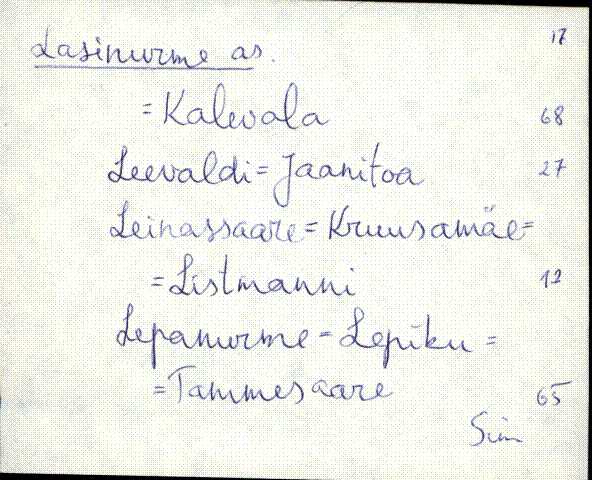 Lasinurme as. 17
= Kalevala 68
Leevaldi = Jaanitoa 27
Leinassaare = Kruusamäe =
= Listmanni 12
Lepanurme = Lepiku =
= Tammesaare 65
Sim